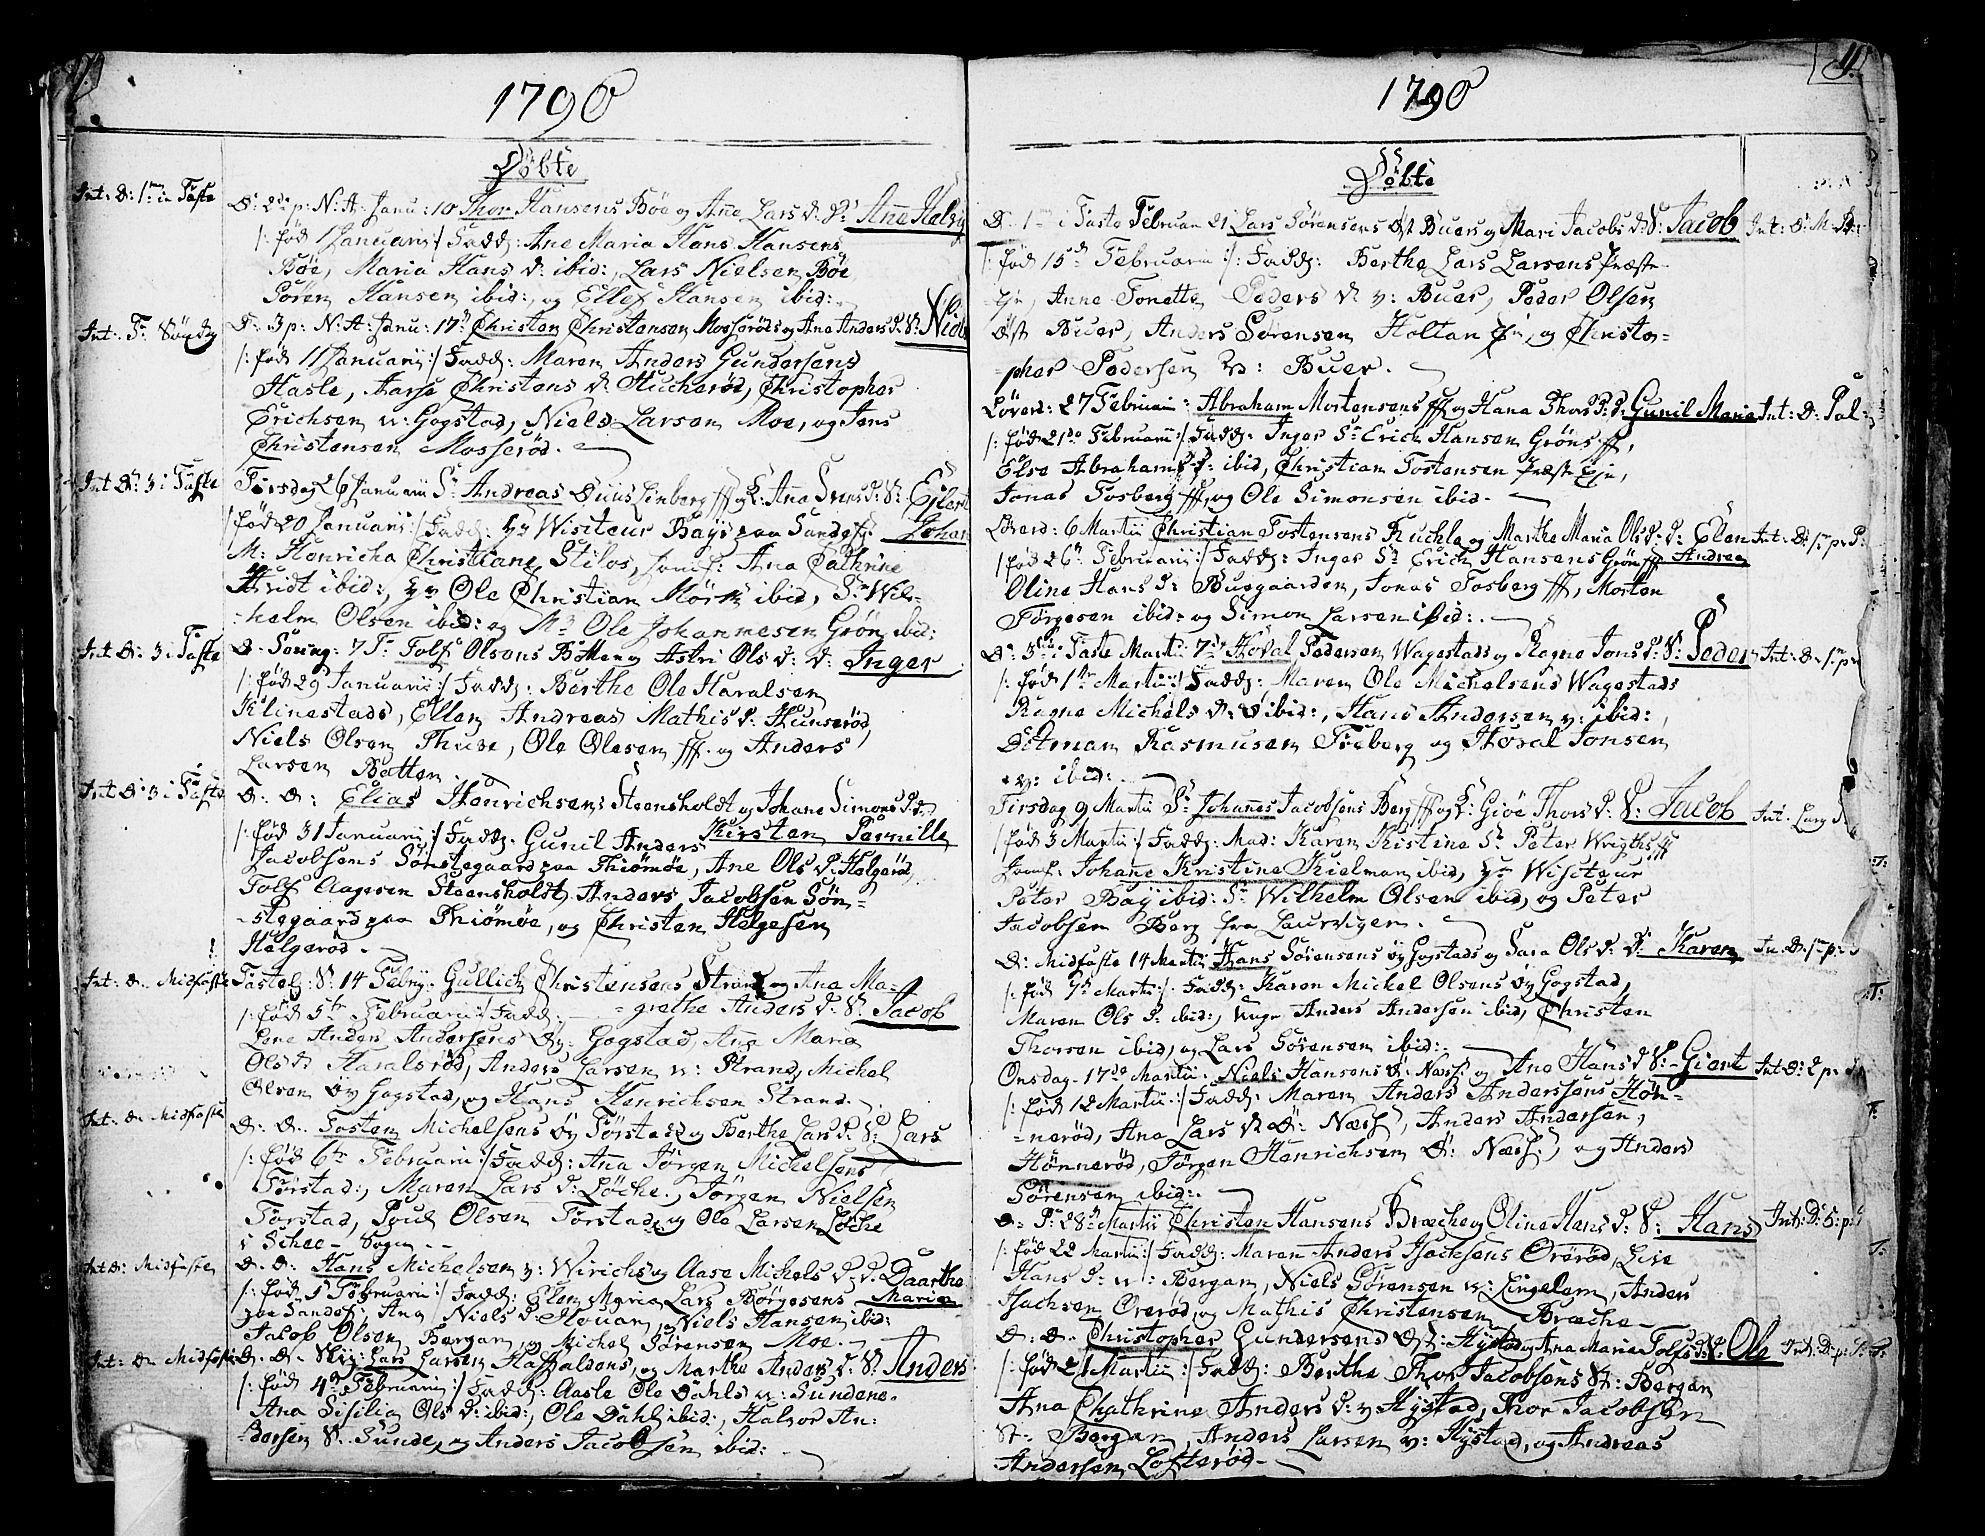 1790
Döbte
Int: D: 1ᵐ i Faste
D: 2dᵉ p: N: A: Janu: 10 Thor Hansens Böe og Ane Lars d: D: Ane Helvig
/: föd 1 Januarii :/ Fadd: Ane Maria Hans Hansens
Böe, Maria Hans d: ibid:, Lars Nielsen Böe
Sören Hansen ibid:, og Ellef Hansen ibid:
Int: F: Söndag
D: 3 p: N: A: Janu: 17ᵈ Christen Christensen Mosseröds og Ane Anders d: S: Niels
/: föd 11 Januarii :/ Fadd: Maren Anders Gundersens
Hasle, Aarse Christens d: Hucheröd, Christopher
Erichsen v: Gogstad, Niels Larsen Moe, og Jens
Christensen Mosseröd.
Int D: 3 i Faste
Tirsdag 26 Januarii Sʳ Andreas Duus Linberg ff og L: Ana Svens d: S: Ejlert
/: föd 20 Januarii :/ Fadd: Hʳ Visiteur Bays paa Sandefi: Johan
M: Henricha Christiane Stilos, Jomf: Ana Cathrine
Hvidt ibid:, Hʳ Ole Christian Mörk ibid, Sʳ Wil-
-helm Olsen ibid: og Mʳ Ole Johannesen Grön ibid:
Int D: 3 i Faste
D. Söning: 7 F: Tolf Olsens Botten og Astri Ols d: D: Inger
/: föd 29 Januarii :/ Fadd: Berthe Ole Haralsen
Klinestads, Ellen Andreas Mathis d: Hunseröd,
Niels Olsen Thure, Ole Olesen ff. og Anders
Larsen Botten.
Int D: 3 i Faste
D: D: Elias Henrichsens Steensholdt og Johane Simons d: D:
/: föd 31 Januarii :/ Fadd: Gunil Anders Kirsten Pernille
Jacobsens Sönstegaard paa Thiömöe, Ane Ols d: Helgeröd,
Tolf Aagesen Steensholdt, Anders Jacobsen Sön-
-stegaard paa Thiömöe, og Christen Helgesen
Helgeröd.
Int: D: Midfaste
Fastel: S: 14 Febry: Gullich Christensens Strand og Ane Ma-
/: föd 5ᵗᵉ Februarii :/ Fadd: -grethe Anders d: S: Jacob
Lene Anders Andersens Öy: Gogstad, Ana Maria
Ols d: Haralsröd, Anders Larsen v: Strand, Michel
Olsen öy Gogstad, og Hans Henrichsen Strand.
Int: D: Midfaste
D: D: Tosten Michelsens öy Törstad og Berthe Lars d: S: Lars
/: föd 6ᵗᵉ Februarii :/ Fadd: Ana Jörgen Michelsens
Törstad, Maren Lars d: Löche, Jörgen Nielsen
Törstad, Poul Olsen Törstad, og Ole Larsen Löche
i Schee-Sogn.
Int D: Midfaste
D: D: Hans Michelsen v: Virichs og Aase Michels d: D: Daarthe
/: föd 5 Februarii :/ Fadd: Elen Maria Lars Börgesens Maria
paa Sandef:, Ana Niels d: Houan, Niels Hansen ibid:
Jacob Olsen Bergan, og Michel Sörensen Moe.
Int: D: Midfaste
D: D: Lars Larsen Haffaldsens, og Marthe Anders d: S: Anders
/: föd 4ᵈᵉ Februarii :/ Fadd: Aasle Ole Dahls v: Sundene.
Ana Sisilia Ols d: ibid:, Ole Dahl ibid:, Halvor An:
-dersen S: Sunde, og Anders Jacobsen ibid:
1790
11.
Döbte
D. 1ᵐ i Faste Februari 21 Lars Sörensens Öst Buers og Mari Jacobs d: S: Jacob Int: D: M: D:
/: föd 15ᵈ Februarii :/ Fadd: Berthe Lars Larsens Præste-
Eje, Anne Tonette Peders d: v: Buer, Peder Olsen
Öst Buer, Anders Sörensen Holtan Eje, og Christo-
-pher Pedersen v: Buer.
Löverd: 27 Februarii: Abraham Mortensens ff og Hana Thors d: D: Gunil Maria Int: D: Pal:
/: föd 21ᵈᵉ Februarii :/ Fadd: Inger Sʳ Erich Hansen Gröns ff,
Else Abrahams d: ibid, Christian Tostensen Præste Eje,
Jonas Fosberg ff, og Ole Simonsen ibid.
Löverd: 6 Martii Christian Tostensens Kuchle og Marthe Maria Ols d: D: Elen Int: D: 1ᵐ p: P:
/: föd 26ᵈ Februarii :/ Fadd: Inger Sʳ Erich Hansens Grön ff Andrea
Oline Hans d: Buegaarden, Jonas Fosberg ff, Morten
Törgesen ibid: og Simon Larsen ibid:
D: 3ᵈⁱᵉ i Faste Martii 7ᵈᵉ Hoval Pedersen Wagestads og Ragne Jons d: S: Peder Int: D: 1ᵐ p:
/: föd 1ᵗᵉ Martii :/ Fadd: Maren Ole Michelsens Wagestads
Ragne Michels d: S ibid:, Hans Andersen v: ibid:,
Ditman Rasmusen Freberg og Hoval Jonsen
v: ibid:
Tirsdag 9 Martii Sʳ Johannes Jacobsens Berg ff og L: Giöe Thors d: S: Jacob Int. Lang
/: föd 3 Martii :/ Fadd: Mad: Karen Kistine Sʳ Peter Wrigths ff
Jomf: Johane Kristine Kielman ibid, Hʳ Visiteur
Peter Bay ibid: Sʳ Wilhelm Olsen ibid, og Peter
Jacobsen Berg fra Laurvigen.
D: Midfaste 14 Martii Hans Sörensens öy Gogstads og Sara Ols d: D: Karen In: D: 1ᵐ p:
/: föd 7ᵈ Martii :/ Fadd: Karen Michel Olsens öy Gogstad,
Maren Ols d: ibid:, Unge Anders Andersen ibid, Christen
Thorsen ibid, og Lars Sörensen ibid:
Onsdag 17ᵈᵉ Martii: Niels Hansens Ö: Næss: og Ane Hans d: S: Giert Int: D: 2 p:
/: föd 12 Martii :/ Fadd: Maren Anders Anderssens Hön-
-neröd, Ana Lars d: Ö: Næss, Anders Andersen,
Hönneröd, Jörgen Henrichsen Ö: Næss:, og Anders
Sörensen ibid:
D: P: 28ᵈ Martii Christen Hansens Bræche og Oline Hans d: S: Hans Int: D: 5: p:
/: föd 22 Martii :/ Fadd: Maren Anders Isachsens Oreröd, Live
Hans d: v: Bergan, Niels Sörensen v: Lingelem, Anders
Isachsen Oreröd, og Mathis Christensen Bræche
D: D: Christopher Gundersens Öst: Hystad og Ana Maria Tolfs d: S: Ole Int: D: p:
/: föd 21 Martii :/ Fadd: Berthe Thor Jacobsens St: Bergan
Ana Chathrine Anders d: v: Hystad, Thor Jacobsen
St: Bergan, Anders Larsen v: Hystad, og Andreas
Andersen Lofteröd.